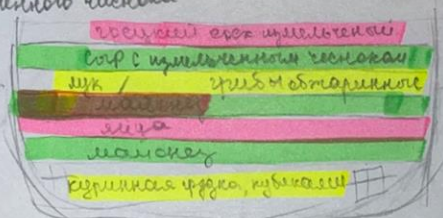 инного чеснока
грецкий орех измельченый
сыр с измельченным чесноком
лук / грибы обжаринные
майонез
яйца
майонез
куринная грудка, кубиками